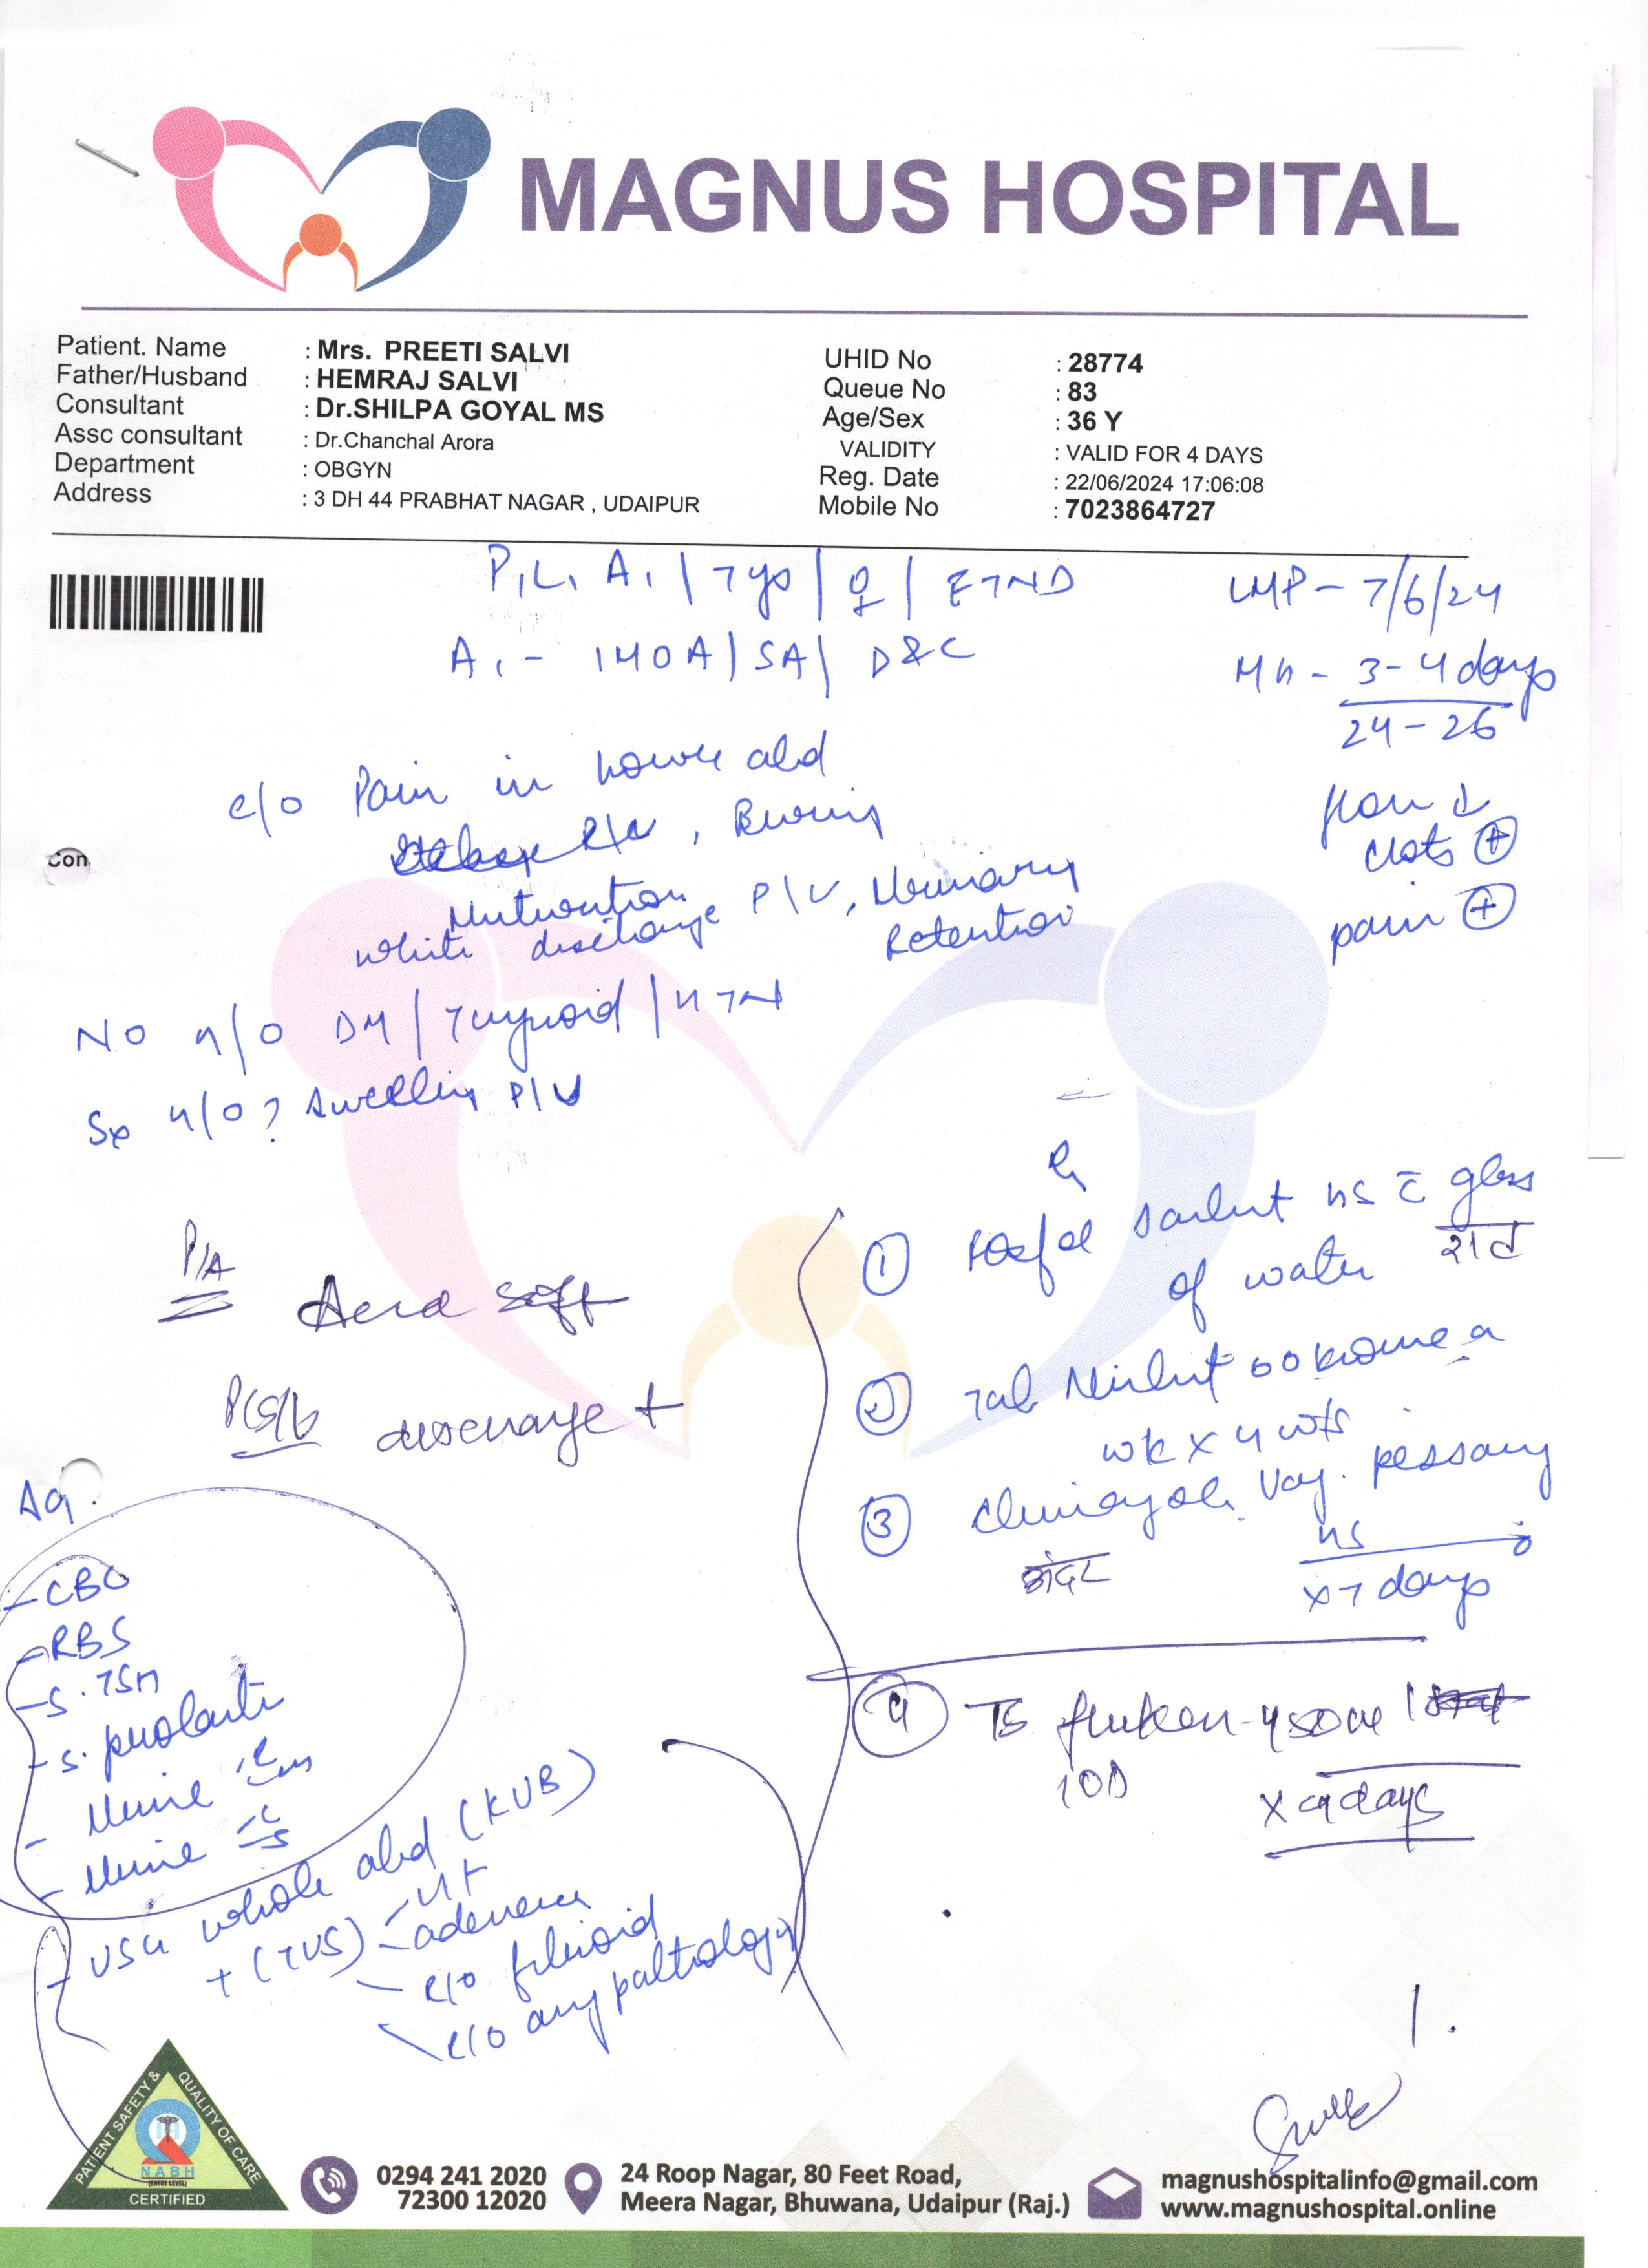 MAGNUS HOSPITAL
Patient. Name : Mrs. PREETI SALVI
Father/Husband : HEMRAJ SALVI
Consultant : Dr.SHILPA GOYAL MS
Assc consultant : Dr.Chanchal Arora
Department : OBGYN
Address : 3 DH 44 PRABHAT NAGAR , UDAIPUR
UHID No : 28774
Queue No : 83
Age/Sex : 36 Y
VALIDITY : VALID FOR 4 DAYS
Reg. Date : 22/06/2024 17:06:08
Mobile No : 7023864727
P1L1 A1 | 7 yrs | ♀ | FTND
A1 - 1 MOA | SA | D&C
LMP - 7/6/24
MH - 3-4 days
24-26
flow ↓
clots +
pain +
Con
c/o Pain in lower abd
, Burning
Micturition
white discharge P/V, Urinary
Retention
No H/O DM / Thyroid / HTN
Sx H/O ? Swelling P/V
P/A
soft
discharge +
Rx
① sachet HS c̄ glass
of water रात
② Tab once a
wk x 4 wks
③ Vag. pessary
अंदर HS
x 7 days
④
1 OD x days
Adv.
- CBC
- RBS
- S. TSH
- S. prolactin
- Urine R/M
- Urine C/S
- USG whole abd (KUB)
+ (TVS) - UT
- adenexa
- R/O fibroid
- R/O any pathology
PATIENT SAFETY & QUALITY OF CARE
NABH
(ENTRY LEVEL)
CERTIFIED
0294 241 2020
72300 12020
24 Roop Nagar, 80 Feet Road,
Meera Nagar, Bhuwana, Udaipur (Raj.)
magnushospitalinfo@gmail.com
www.magnushospital.online